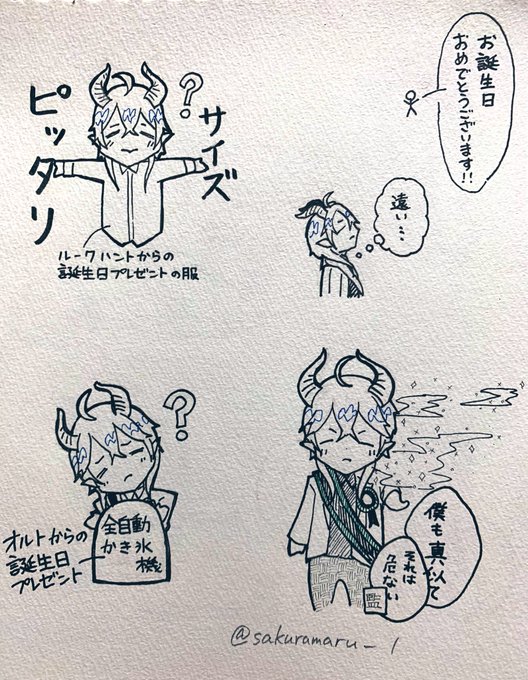 お誕生日
おめでとうございます!!
遠い…
?
サイズ
ピッタリ
ルークハントからの
誕生日プレゼントの服
?
全自動
かき氷
機
オルトからの
誕生日
プレゼント
僕も真似て
それは
危ない
監
@sakuramaru_1